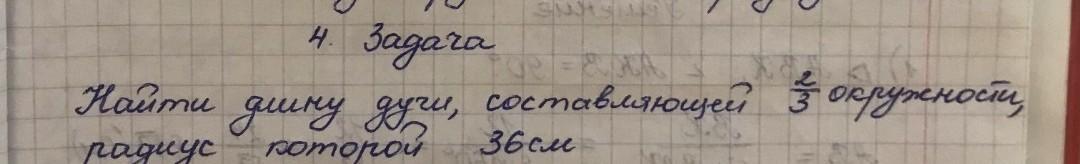 4. Задача
Найти длину дуги, составляющей 2/3 окружности,
радиус которой 36см